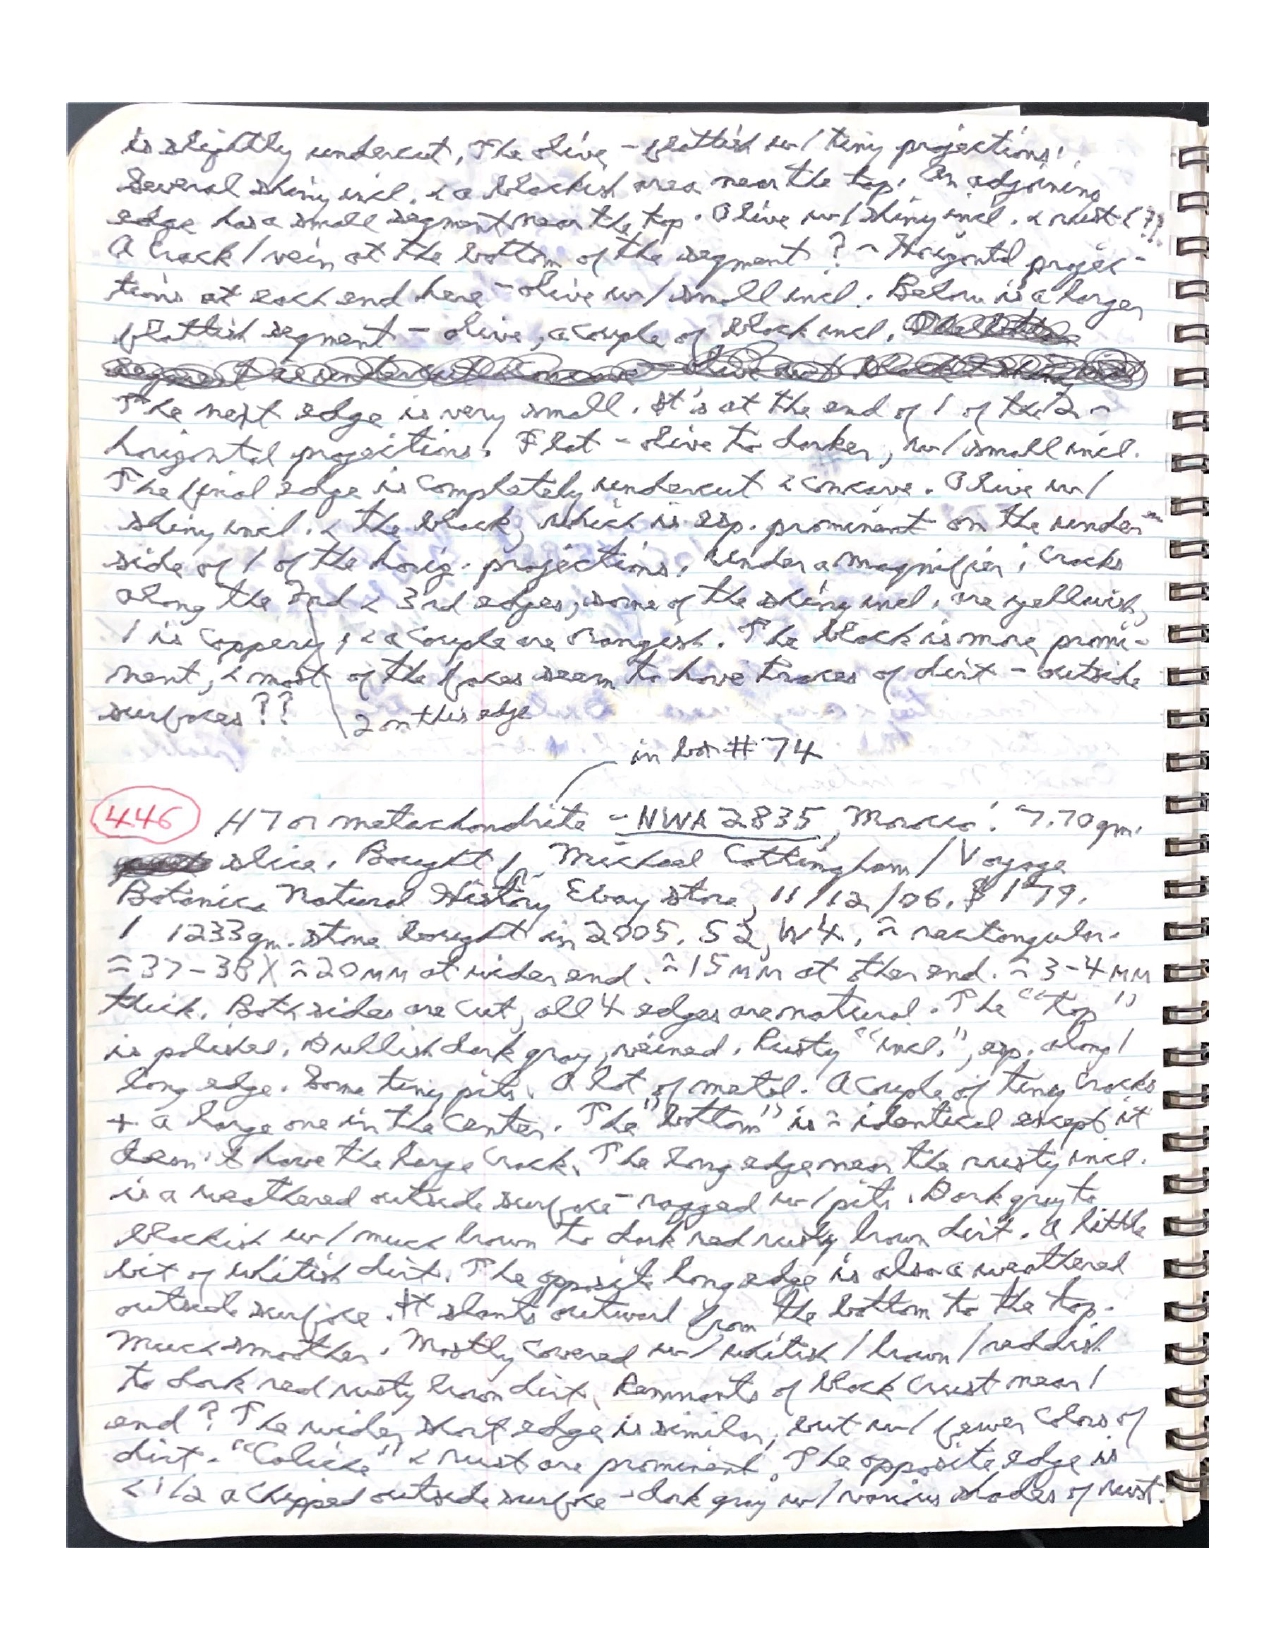 is slightly undercut. The olive - flattish w/ tiny projections.
Several shiny incl. & a blackish area near the top. An adjoining
edge has a small segment near the top. Olive w/ shiny incl. & rust (??).
A crack/vein at the bottom of the segment? ~ Horizontal projec-
tions at each end here - olive w/ small incl. Below is a larger
flattish segment - olive, a couple of black incl.
The next edge is very small. It's at the end of 1 of the 2 ~
horizontal projections. Flat - olive to darker, w/ small incl.
The final edge is completely undercut & concave. Olive w/
shiny incl. & the black, which is esp. prominent on the under-
side of 1 of the horiz. projections. Under a magnifier; cracks
along the 2nd & 3rd edges, some of the shiny incl. are yellowish,
1 is coppery, & a couple are orangish. The black is more promi-
nent, & most of the faces seem to have traces of dirt - outside
surfaces??
2 on this edge
in box #74
446 H7 or metachondrite - NWA 2835, Morocco. 7.70 gm.
slice. Bought f. Michael Cottingham/Voyage
Botanica Natural History Ebay store, 11/12/06. $179.
1 1233 gm. stone bought in 2005. S2, W4. ≈ rectangular.
≈ 37-38 X ≈ 20 MM at wider end. ≈ 15 MM at other end. ≈ 3-4 MM
thick. Both sides are cut, all 4 edges are natural. The "top"
is polished. Dullish dark gray, veined. Rusty "incl.", esp. along 1
long edge. Some tiny pits. A lot of metal. A couple of tiny cracks
+ a large one in the center. The "bottom" is ≈ identical except it
doesn't have the large crack. The long edge near the rusty incl.
is a weathered outside surface - ragged w/ pits. Dark gray to
blackish w/ much brown to dark red rusty brown dirt. A little
bit of whitish dirt. The opposite long edge is also a weathered
outside surface. It slants outward from the bottom to the top.
Much smoother. Mostly covered w/ whitish/brown/reddish
to dark red rusty brown dirt. Remnants of black crust near 1
end? The wider short edge is similar, but w/ fewer colors of
dirt. "Caliche" & rust are prominent. The opposite edge is
< 1/2 a chipped outside surface - dark gray w/ various shades of rust.